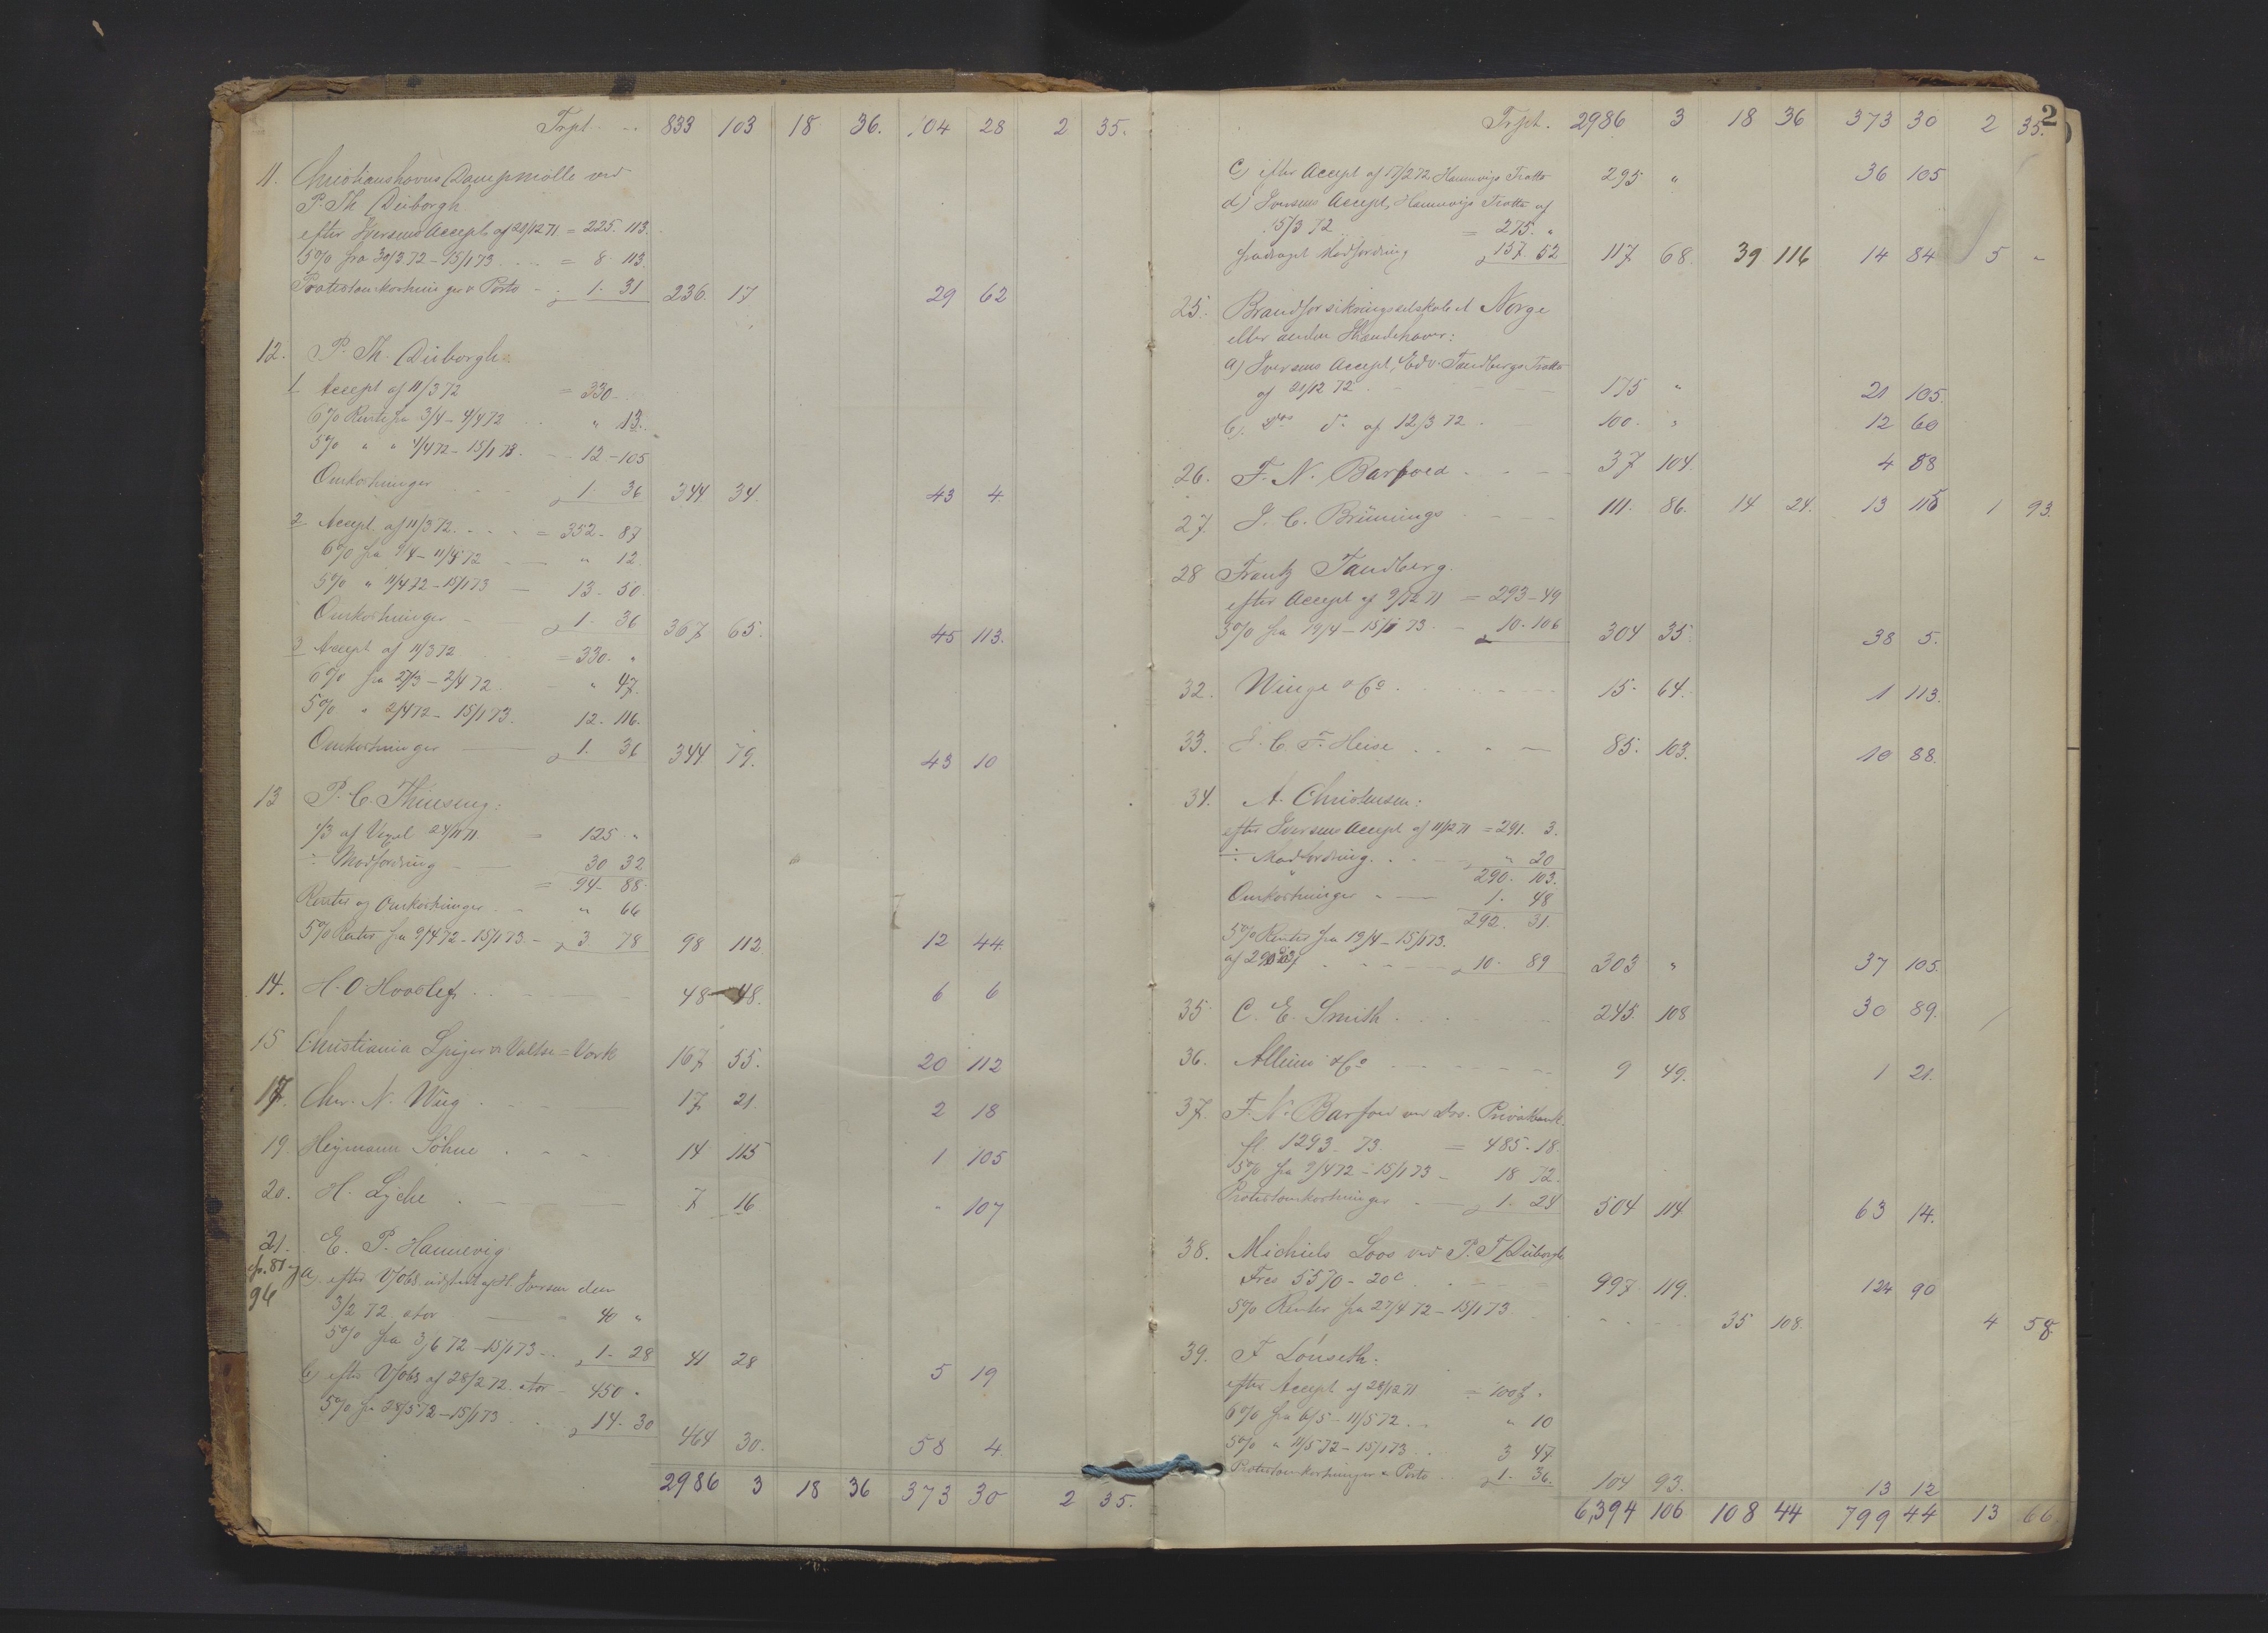 Trpt. 833 103 18 36. 104 28 2 35.
11. Christianshavns Dampmölle ved
P. Th. Düborgh
efter Iversens Accept af 29/12 71 = 225. 113.
5% fra 30/3 72 – 15/1 73 = 8. 113.
Protestomkostninger & Porto 1. 31 236. 17 29 62
12. P. Th. Düborgh
1 Accept af 11/3 72 = 330
6% Rente fra 3/4 – 4/4 72 " 13.
5% " " 4/4 72 – 15/1 73. 12 – 105
Omkostninger 1. 36 344 34. 43 4.
2 Accept af 11/3 72. = 352 – 87
6% fra 9/4 – 11/4 72 " 12.
5% " 11/4 72 – 15/1 73 13 – 50.
Omkostninger 1. 36 367 65. 45 113.
3 Accept af 11/3 72 = 330. "
6% fra 27/3 – 2/4 72. " 47.
5% " 2/4 72 – 15/1 73. 12. 116.
Omkostninger 1. 36 344 79. 43 10
13 P. C. Thuesen:
1/3 af Vexel 24/11 71 = 125. "
÷ Modfordring 30 32
= 94 – 88.
Renter og Omkostninger " 66
5% Renter fra 9/4 72 – 15/1 73 – 3 78 98 112 12 44
14. H. O. Hovslef 48 – 48. 6 6
15 Christiania Spiger & Valse = Værk 167 55. 20 112
17. Chr. N. Wiig 17 21. 2 18
19. Heymann Söhne 14 115 1 105
20. H. Lyche 7 16 – 107
21. E. P. Hannevig
cfr. 81 og a) efter V/Obs. udstedt af H. Iversen den
96 3/2 72 stor 40 "
5% fra 3/6 72 – 15/1 73 1 – 28 41 28 5 19
b) efter V/Obs af 28/2 72 stor 450 "
5% fra 28/5 72 – 15/1 73 14. 30 464 30. 58 4.
2986 3 18 36 373 30 2 35.
2
Trpt. 2986 3 18 36 373 30 2 35.
c) efter Accept af 17/2 72, Hannevigs Tratte 295 " 36 105
d) Iversens Accept, Hannevigs Tratte af
15/3 72 = 275. "
fradraget Modfordring 157. 52 117 68. 39 116 14 84 5 "
25. Brandforsikringsselskabet Norge
eller anden Ihændehaver:
a) Iversens Accept, Edv. Tandbergs Tratte
af 21/12 72 175 " 21 105.
b). do do af 12/3 72 100. " 12 60
26. F. N. Barfoed 37 104. 4 88
27. J. C. Brünings 111. 86. 14 24. 13 115 1 93.
28 Frantz Tandberg.
efter Accept af 9/12 71 = 293 – 49
5% fra 19/4 – 15/1 73. 10. 106 304 35. 38 5.
32. Winge & Co. 15. 64. 1 113.
33. J. C. F. Heise 85. 103. 10 88.
34. A. Christensen:
efter Iversens Accept af 11/12 71 = 291. 3.
÷ Modfordring " 20
290. 103.
Omkostninger 1. 48
292. 31.
5% Renter fra 19/4 – 15/1 73.
af 290 10. 89 303 " 37 105.
35 C. E. Smith 245. 108 30 89.
36. Allum & Co. 9 49. 1 21.
37. F. N. Barfoed ved Privatbank.
fl. 1293. 73. = 485. 18.
5% fra 9/4 72 – 15/1 73 – 18 72.
Protestomkostninger 1. 24 504 114 63 14.
38. Michiels Loos ved P. T. Düborgh
Frcs 5570 – 20 c. 997. 119. 124 90
5% Renter fra 27/4 72 – 15/1 73 35 108. 4 58.
39. F. Lönseth.
efter Accept af 28/12 71 = 100 "
6% fra 6/5 – 11/5 72. " 10
5% " 11/5 72 – 15/1 73 3 47
Protestomkostninger & Porto 1. 36. 104 93. 13 12
6,394 106 108 44 799 44 13 66